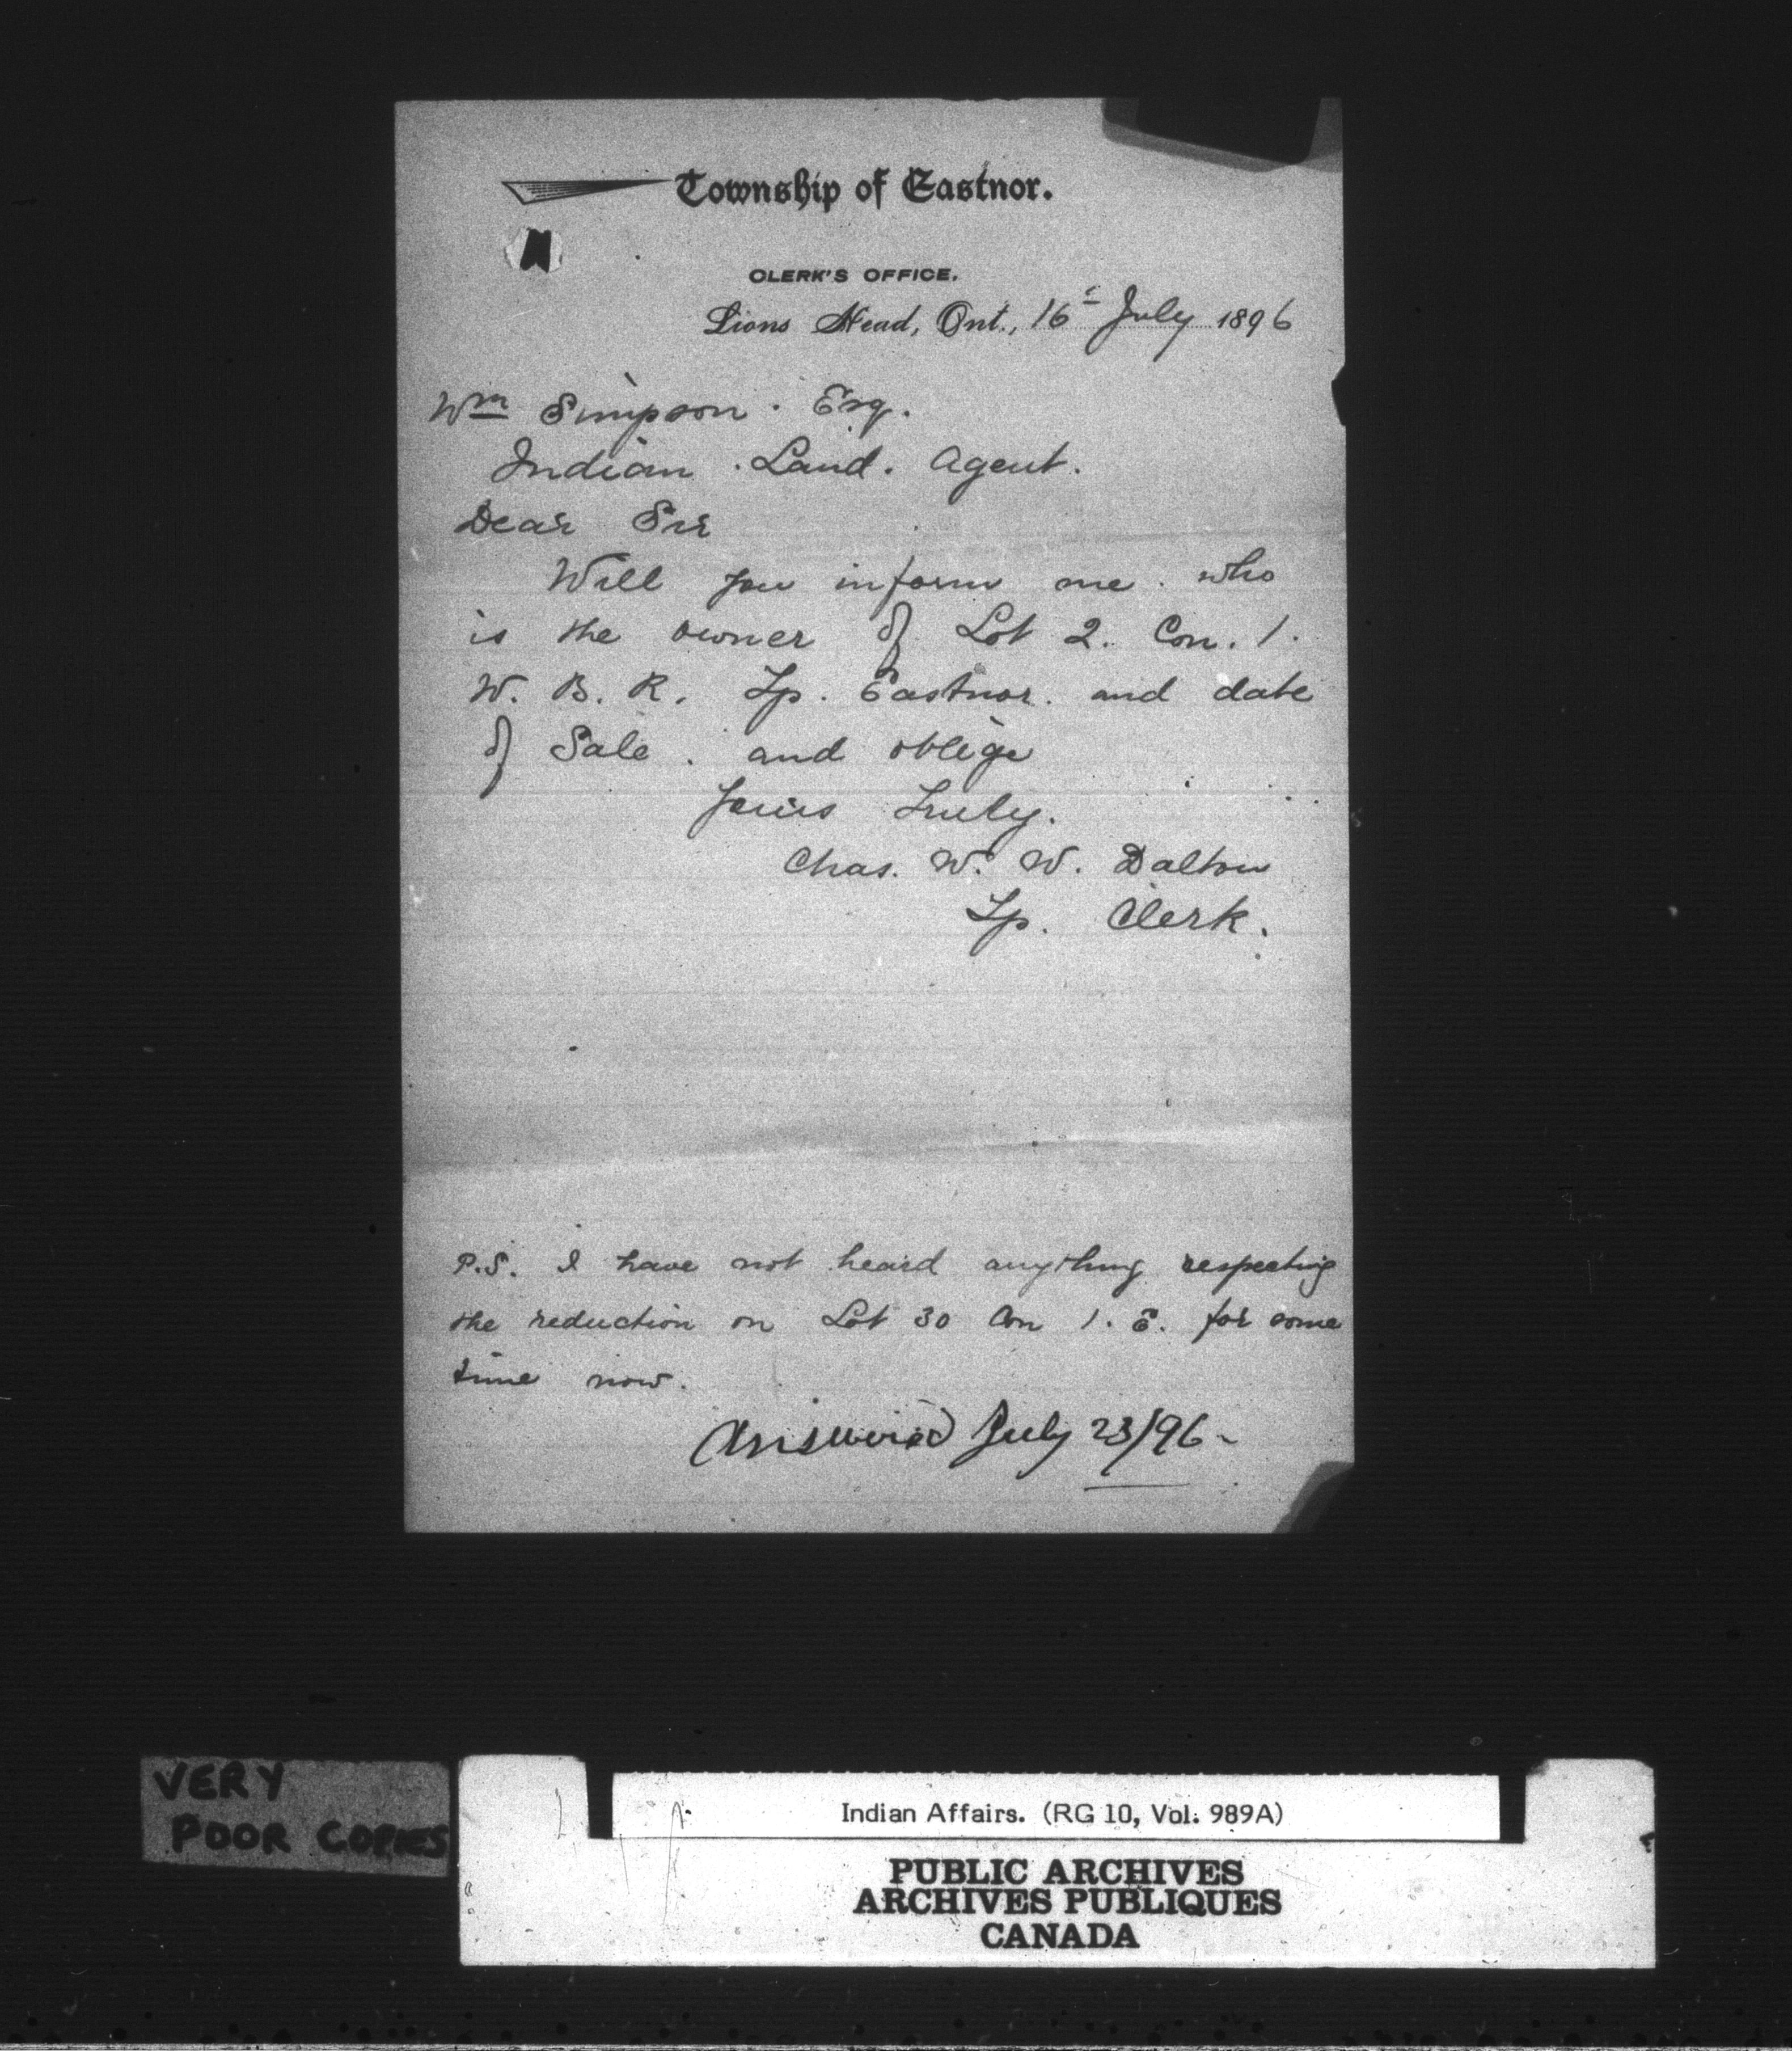 Township of Eastnor.
CLERK'S OFFICE.
Lions Head, Ont., 16th July 1896
Wm Simpson. Esq.
Indian. Land. Agent.
Dear Sir
Will you inform me. who
is the owner of Lot 2. Con. 1.
W. B. R. Tp. Eastnor. and date
of Sale. and oblige
Yours Truly.
Chas. W. W. Dalton
Tp. Clerk.
P.S. I have not heard anything respecting
the reduction on Lot 30 Con 1. E. for some
time now.
Answered July 23/96 -
VERY
POOR COPIES
Indian Affairs. (RG 10, Vol. 989A)
PUBLIC ARCHIVES
ARCHIVES PUBLIQUES
CANADA